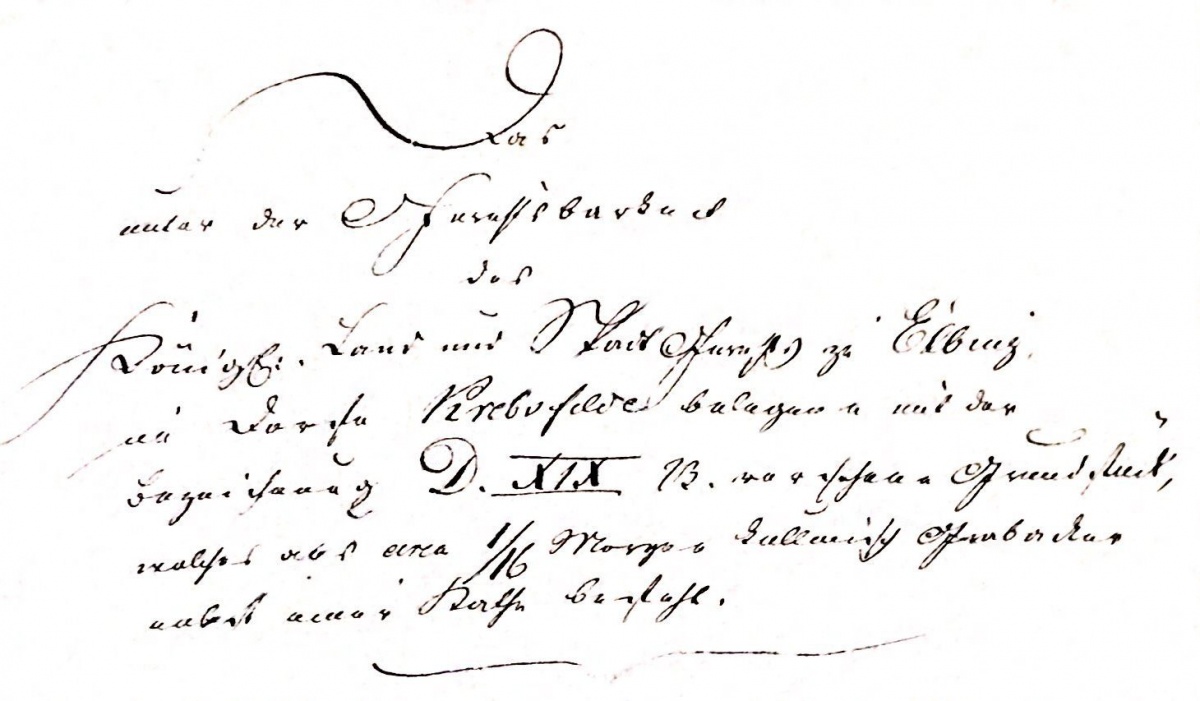 Das
unter der Gerichtsbarkeit
des
Königl. Land und Stadt Gerichts zu Elbing
im Dorfe Krebsfelde belegene mit der
Bezeichnung D. XIX B. versehene Grundstück,
welches aus circa 1/16 Morgen kullmisch Grabacker
nebst einer Kathe besteht.